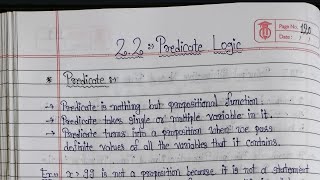 Page No. 120
Date :
2.2 :- Predicate Logic
* Predicate :-
→ Predicate is nothing but propositional function.
→ Predicate takes single or multiple variable in it.
→ Predicate turns into a proposition when we pass
definite values of all the variables that it contains.
Ex:- x > 99 is not a proposition because it is not a statement